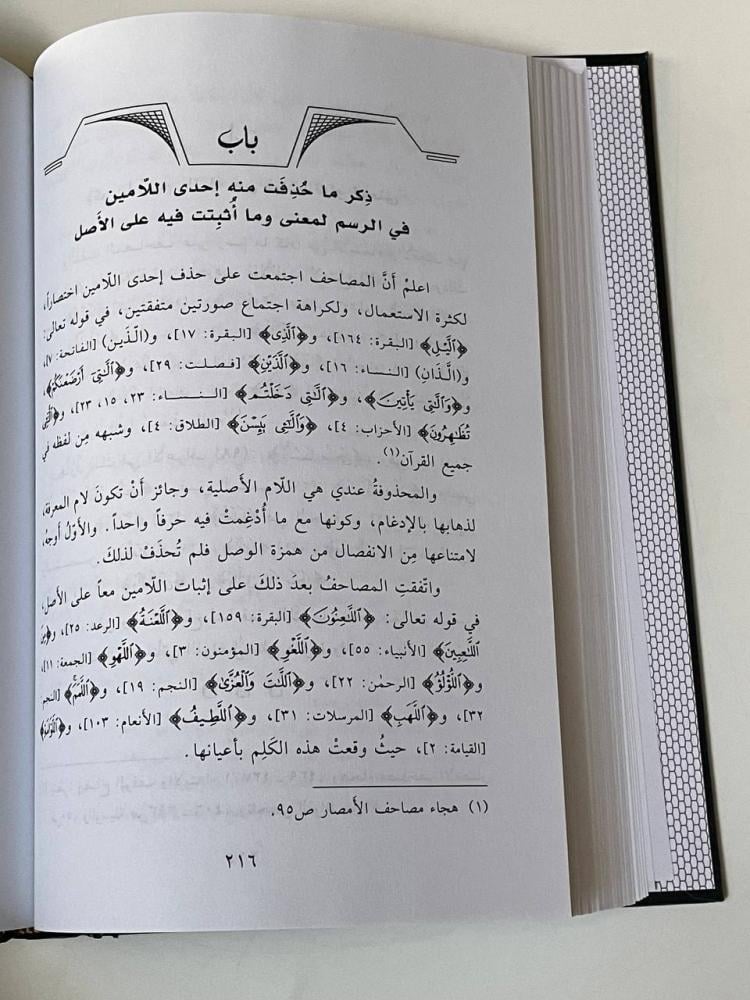 باب
ذِكر ما حُذِفَت منه إحدى اللّامين
في الرسم لمعنى وما أُثبِتت فيه على الأَصل
اعلمْ أنَّ المصاحف اجتمعت على حذف إحدى اللّامين اختصاراً،
لكثرة الاستعمال، ولكراهة اجتماع صورتين متفقتين، في قوله تعالى:
﴿ٱلَّيْلِ﴾ [البقرة: ١٦٤]، و﴿ٱلَّذِى﴾ [البقرة: ١٧]، و(الّذين) [الفاتحة: ٧]،
و(الّذَانِ) [النساء: ١٦]، و﴿ٱلَّذَيْنِ﴾ [فصلت: ٢٩]، و﴿ٱلَّٰتِىٓ أَرْضَعْنَكُمْ﴾،
و﴿وَٱلَّٰتِى يَأْتِينَ﴾، و﴿ٱلَّٰتِى دَخَلْتُم﴾ [النساء: ٢٣، ١٥، ٢٣]، و﴿ٱلَّٰٓـِٔى
تُظَٰهِرُونَ﴾ [الأحزاب: ٤]، ﴿وَٱلَّٰٓـِٔى يَئِسْنَ﴾ [الطلاق: ٤]، وشبهه مِن لفظه في
جميع القرآن(١).
والمحذوفةُ عندي هي اللّام الأصلية، وجائز أنْ تكونَ لام المعرفة،
لذهابها بالإدغام، وكونها مع ما أُدْغِمتْ فيه حرفاً واحداً. والأوّلُ أوجهُ،
لامتناعها مِن الانفصال من همزة الوصل فلم تُحذَفْ لذلكَ.
واتّفقتِ المصاحفُ بعدَ ذلكَ على إثبات اللّامين معاً على الأصل،
في قوله تعالى: ﴿ٱللَّٰعِنُونَ﴾ [البقرة: ١٥٩]، و﴿ٱللَّعْنَةُ﴾ [الرعد: ٢٥]، و﴿مِنَ
ٱللَّٰعِبِينَ﴾ [الأنبياء: ٥٥]، و﴿ٱللَّغْوِ﴾ [المؤمنون: ٣]، و﴿ٱللَّهْوِ﴾ [الجمعة: ١١]،
و﴿ٱللُّؤْلُؤُ﴾ [الرحمٰن: ٢٢]، و﴿ٱللَّٰتَ وَٱلْعُزَّىٰ﴾ [النجم: ١٩]، و﴿ٱللَّمَمَ﴾ [النجم
٣٢]، و﴿ٱللَّهَبِ﴾ [المرسلات: ٣١]، و﴿ٱللَّطِيفُ﴾ [الأنعام: ١٠٣]، و﴿ٱللَّوَّامَةِ﴾
[القيامة: ٢]، حيثُ وقعتْ هذه الكَلِم بأعيانها.
(١) هجاء مصاحف الأمصار ص٩٥.
٢١٦